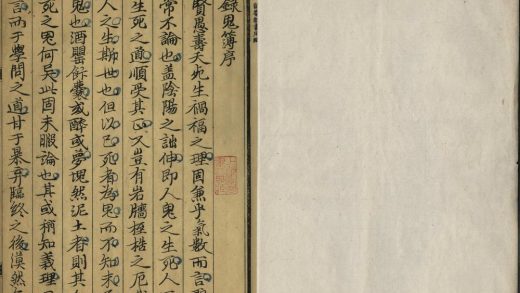 錄鬼簿序
賢愚壽夭死生禍福之理固兼乎氣數而言
常不論也盖陰陽之詘伸即人鬼之生死人
生死之道順受其正又豈有岩牆桎梏之厄
人之生斯世也但以已死者為鬼而不知未
鬼也酒罌飯囊或醉或夢塊然泥土者則其人
死之鬼何异此固未暇論也其或稍知義理
言而于學問之道甘于暴弃臨終之後漠然